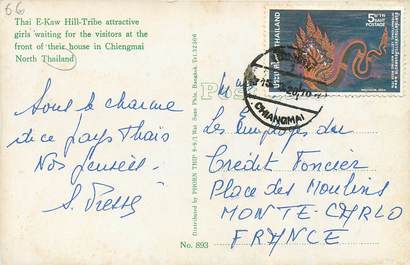 66
Thai E-Kaw Hill-Tribe attractive
girls waiting for the visitors at the
front of their house in Chiengmai
North Thailand
Sous le charme
de ce pays Thaïs
Nos pensées
S.
No. 893
Distributed by PHORN THIP
Bangkok, Tel:
POST
5 บาท
BAHT
POSTAGE
ประเทศไทย THAILAND
CHIANGMAI
Les Employés du
Crédit Foncier
Place des Moulins
MONTE-CARLO
FRANCE